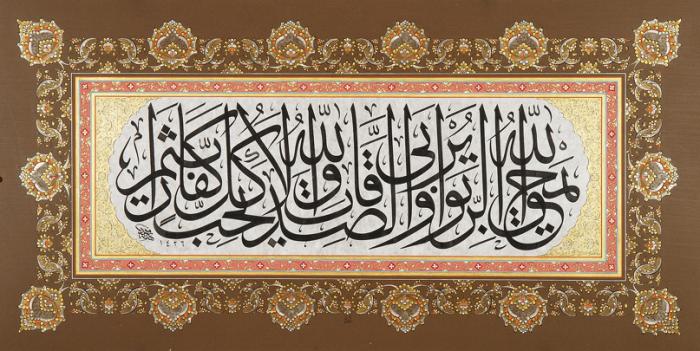 يمحق الله الربوا ويربي الصدقات والله لا يحب كل كفار أثيم
١٤٢٦